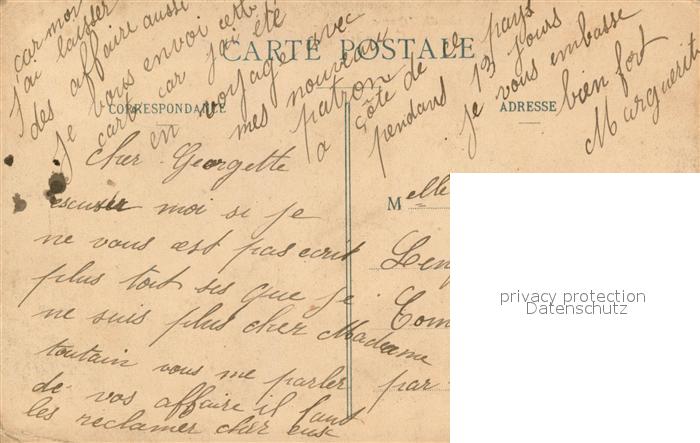 CARTE POSTALE
CORRESPONDANCE
ADRESSE
Cher Georgette
escuser moi si je
ne vous est pas ecrit
plus tout ses que je
ne suis plus cher Madame
toutain vous me parler
de vos affaire il faut
les reclamer cher eux
car moi
J'ai laisser
des affaire aussi
Je vous envoi cette
carte car j'ai été
en voyage avec
mes nouveaux
patron
a côte de ce pays
pendans 13 jours
je vous embasse
bien fort
Marguerit
Melle
Len
Com
par
privacy protection
Datenschutz